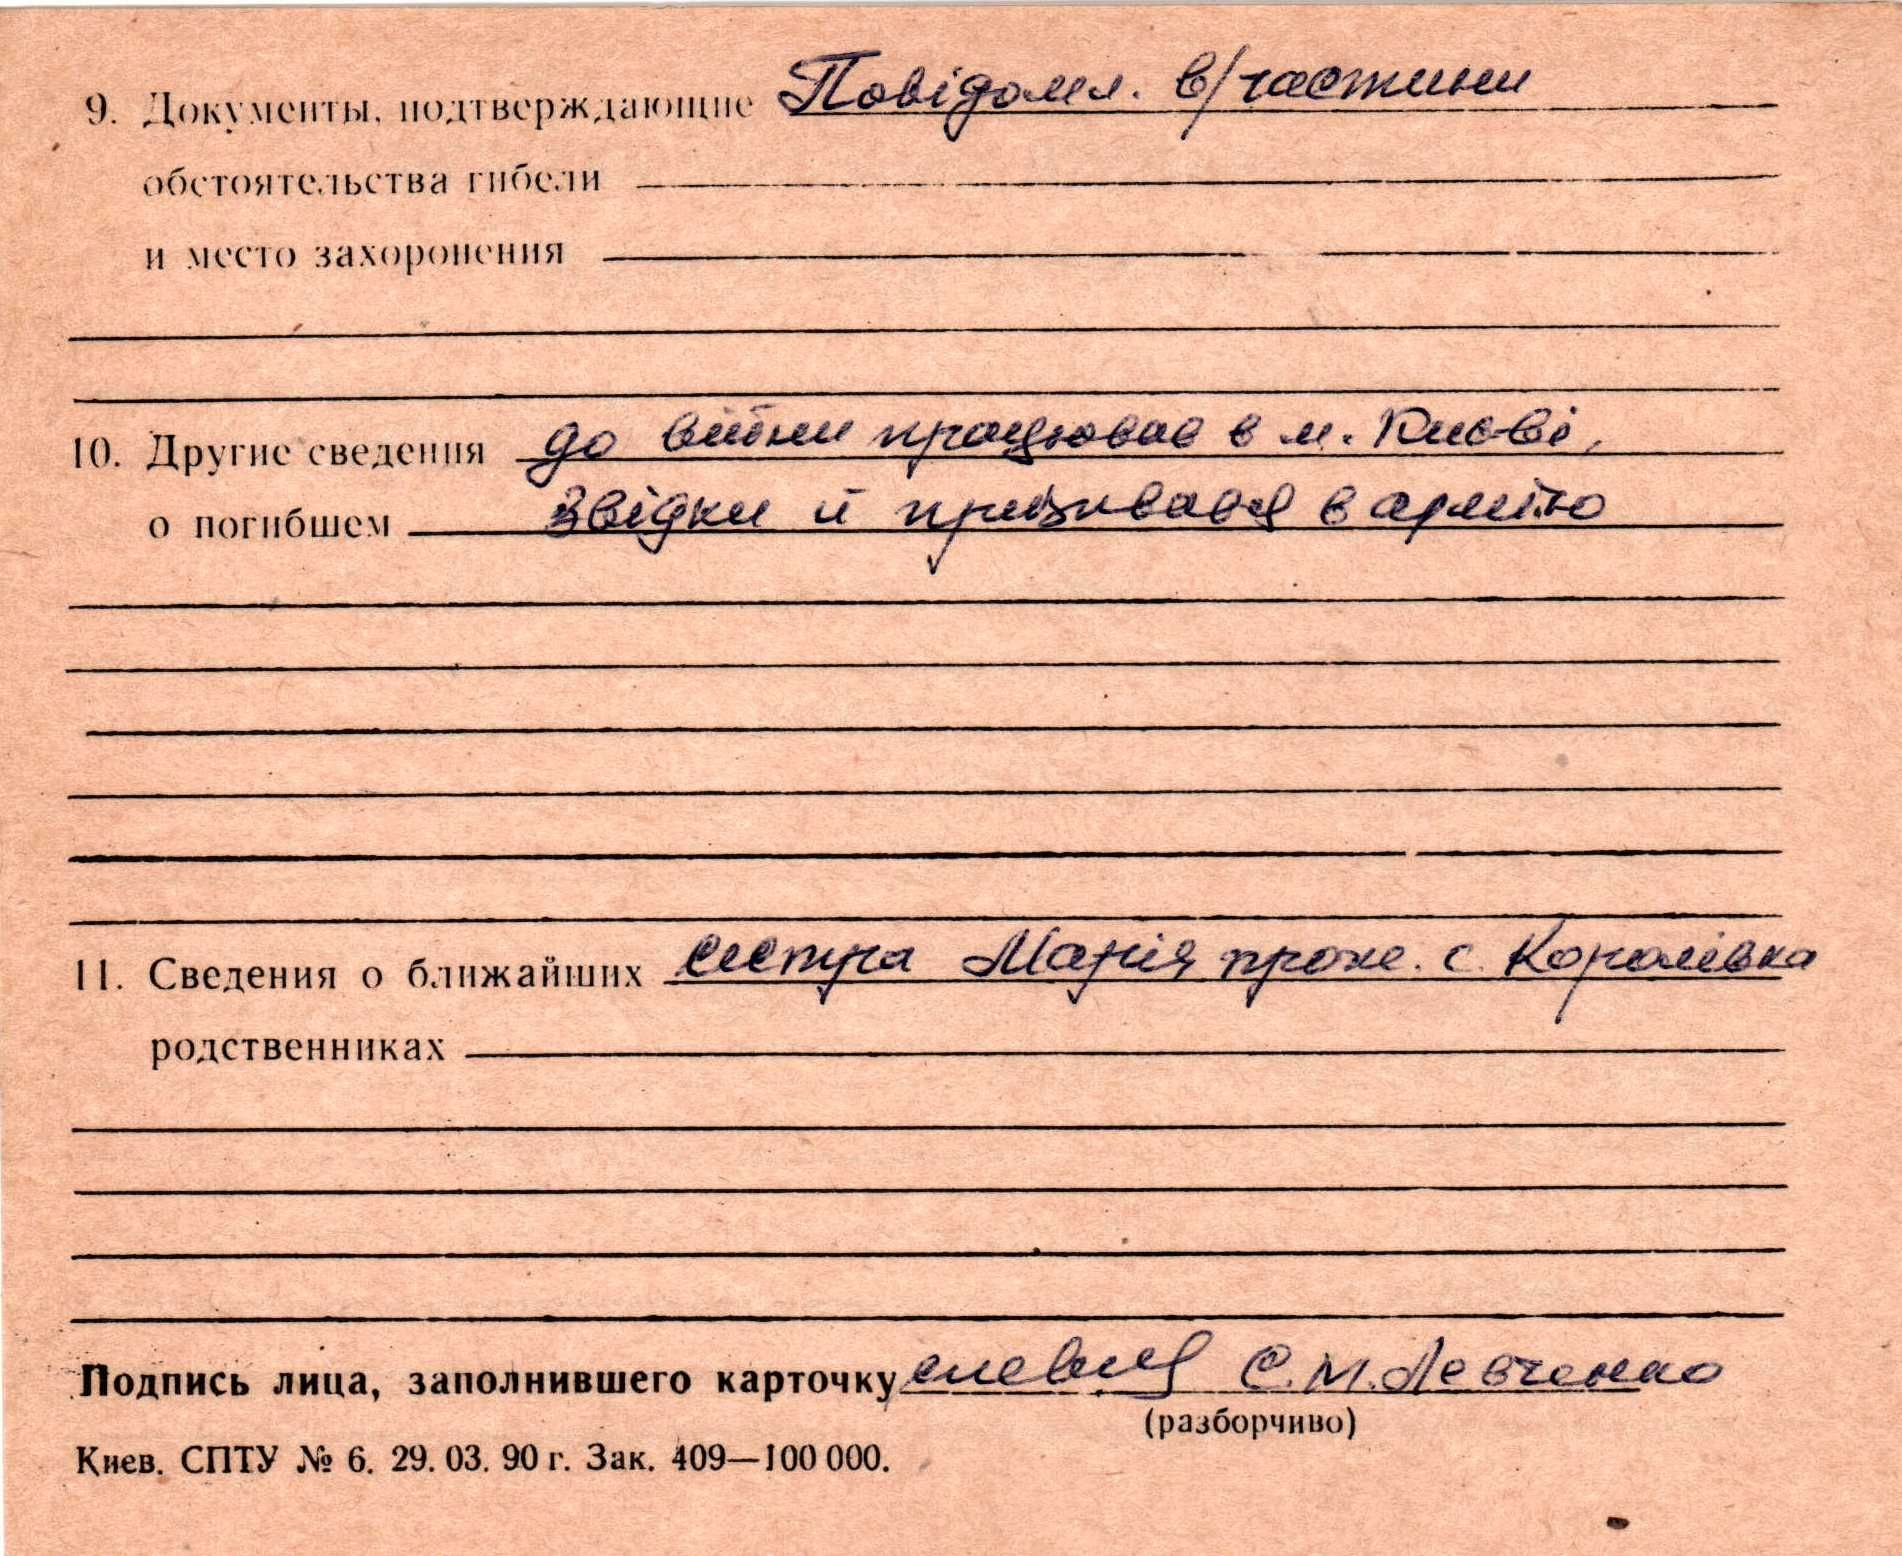 9. Документы, подтверждающие Повідомл. в/частини
обстоятельства гибели
и место захоронения
10. Другие сведения до війни працював в м. Києві,
о погибшем звідки й призивався в армію
11. Сведения о ближайших сестра Марія прож. с. Королівка
родственниках
Подпись лица, заполнившего карточку С.М.Левченко
(разборчиво)
Киев. СПТУ № 6. 29. 03. 90 г. Зак. 409—100 000.